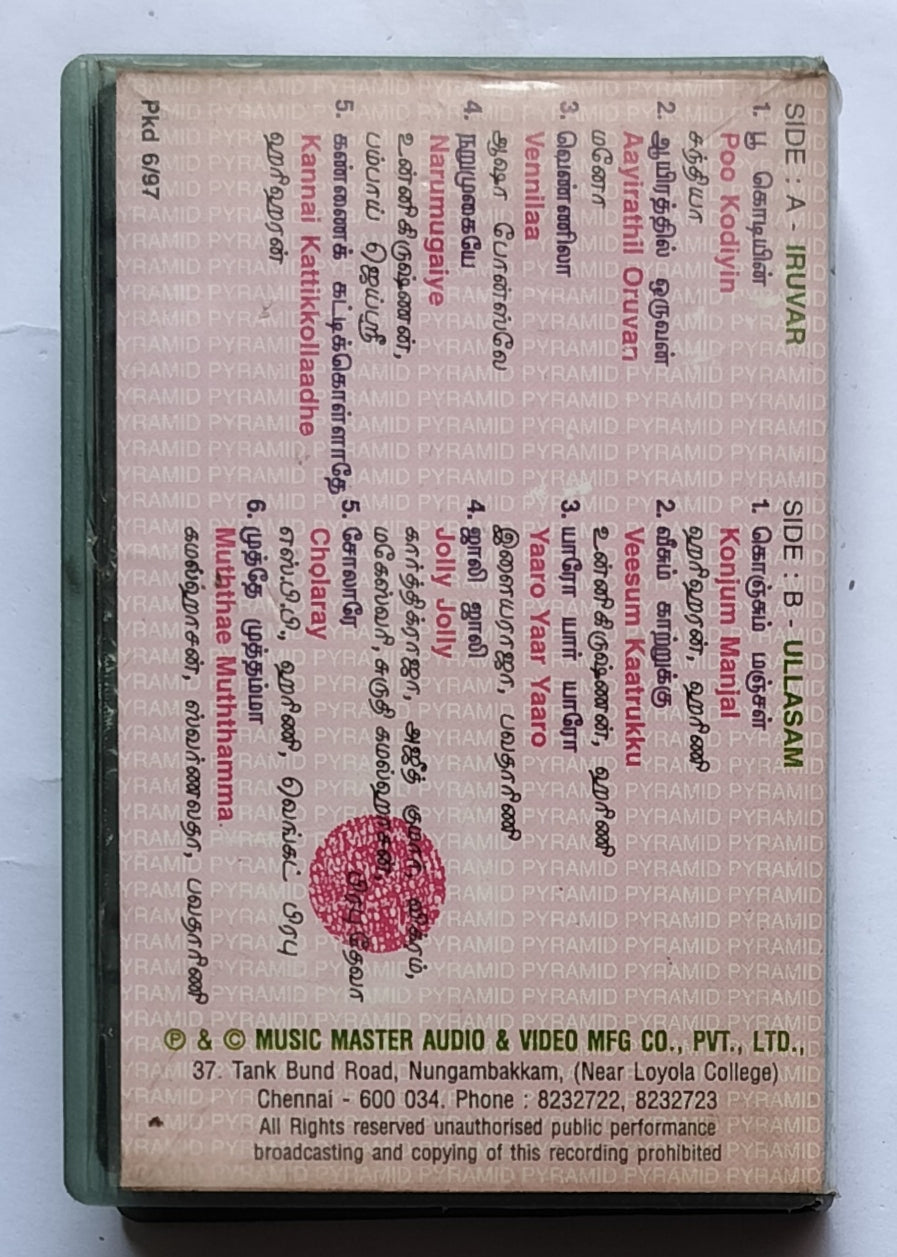 SIDE : A - IRUVAR
1. பூ கொடியின்
Poo Kodiyin
சந்தியா
2. ஆயிரத்தில் ஒருவன்
Aayirathil Oruvan
மனோ
3. வெண்ணிலா
Vennilaa
ஆஷா போன்ஸ்லே
4. நறுமுகையே
Narumugaiye
உன்னிகிருஷ்ணன்,
பம்பாய் ஜெய்ஸ்ரீ
5. கண்ணைக் கட்டிக்கொள்ளாதே
Kannai Kattikkollaadhe
ஹரிஹரன்
Pkd 6/97
SIDE : B - ULLASAM
1. கொஞ்சும் மஞ்சள்
Konjum Manjal
ஹரிஹரன், ஹரிணி
2. வீசும் காற்றுக்கு
Veesum Kaatrukku
உன்னிகிருஷ்ணன், ஹரிணி
3. யாரோ யார் யாரோ
Yaaro Yaar Yaaro
இளையராஜா, பவதாரிணி
4. ஜாலி ஜாலி
Jolly Jolly
கார்த்திக்ராஜா, அஜீத் குமார், விக்ரம்,
மகேஸ்வரி, சுருதி கமல்ஹாசன், பிரபுதேவா
5. சோலாரே
Cholaray
எஸ்.பி.பி., ஹரிணி, வெங்கட் பிரபு
6. முத்தே முத்தம்மா
Muththae Muththamma
கமல்ஹாசன், ஸ்வர்ணலதா, பவதாரிணி
℗ & © MUSIC MASTER AUDIO & VIDEO MFG CO., PVT., LTD.,
37. Tank Bund Road, Nungambakkam, (Near Loyola College)
Chennai - 600 034. Phone : 8232722, 8232723
All Rights reserved unauthorised public performance
broadcasting and copying of this recording prohibited